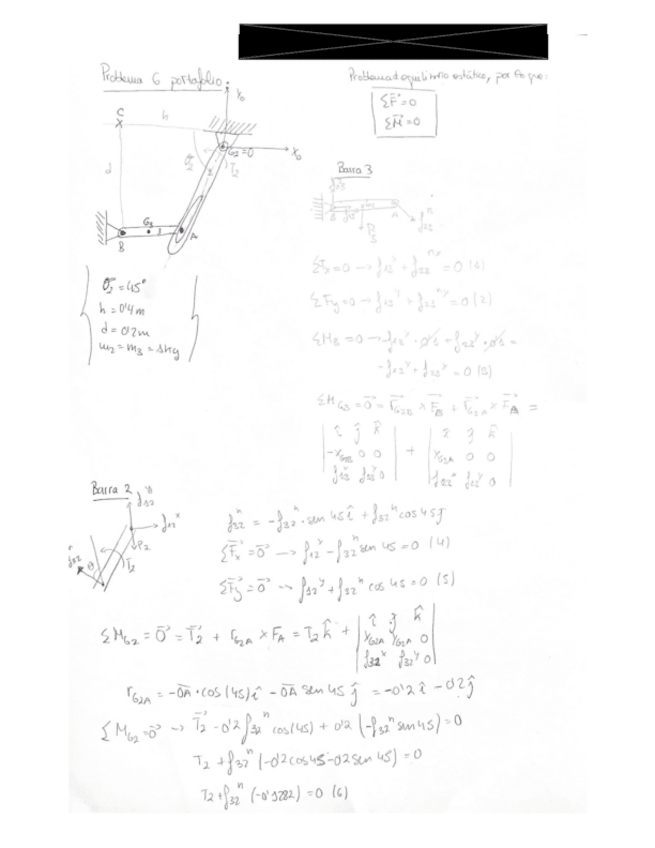 Problema 6 portafolio
Problema de equilibrio estático, por lo que:
ΣF⃗=0
ΣM⃗=0
Y₀
C
h
G₂=0
X₀
θ₂
T₂
d
G₃
3
A
B
θ₂=45°
h=0'4m
d=0'2m
m₂=m₃=1kg
Barra 3
ΣFx=0 → f₁₃ˣ + f₂₃ⁿˣ = 0 (1)
ΣFy=0 → f₁₃ʸ + f₂₃ⁿʸ = 0 (2)
-f₁₃ʸ + f₂₃ʸ = 0 (3)
ΣM_G3 = 0⃗ = r_G3B × F_B + r_G3A × F_A =
| i j k |
| -x_G3B 0 0 |
| f₁₃ˣ f₁₃ʸ 0 |
+
| i j k |
| x_G3A 0 0 |
| f₂₃ˣ f₂₃ʸ 0 |
Barra 2
f₁₂ʸ
f₁₂ˣ
P₂
T₂
θ
f₃₂ⁿ = -f₃₂ⁿ·sen 45 i + f₃₂ⁿ cos 45 j
ΣFx = 0⃗ → f₁₂ˣ - f₃₂ⁿ sen 45 = 0 (4)
ΣFy = 0⃗ → f₁₂ʸ + f₃₂ⁿ cos 45 = 0 (5)
ΣM_G2 = 0⃗ = T₂ + r_G2A × F_A = T₂ k +
| i j k |
| x_G2A y_G2A 0 |
| f₃₂ˣ f₃₂ʸ 0 |
r_G2A = -OA·cos(45) i - OA sen 45 j = -0'2 i - 0'2 j
ΣM_G2 = 0⃗ → T₂ - 0'2 f₃₂ⁿ cos(45) + 0'2 (-f₃₂ⁿ sen 45) = 0
T₂ + f₃₂ⁿ (-0'2 cos 45 - 0'2 sen 45) = 0
T₂ + f₃₂ⁿ (-0'2282) = 0 (6)